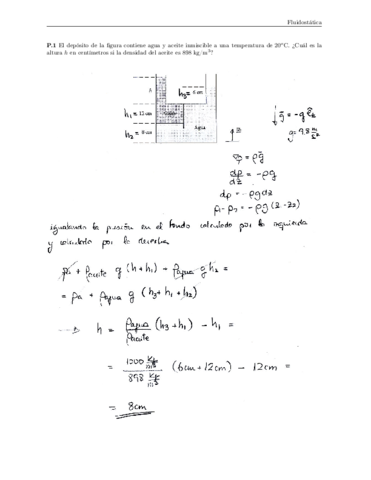 Fluidostática
P.1 El depósito de la figura contiene agua y aceite inmiscible a una temperatura de 20°C. ¿Cuál es la
altura h en centímetros si la densidad del aceite es 898 kg/m³?
h
h₃ = 6 cm
h₁ = 12 cm
h₂ = 8 cm
Agua
z
ḡ = -g ē_z
g = 9,8 m/s²
∇p = ρḡ
dp/dz = -ρg
dp = -ρg dz
p₁ - p₂ = -ρg (z - z₂)
igualando la presión en el fondo calculado por la izquierda
y calculado por la derecha
pa + ρaceite g (h + h₁) + ρagua g h₂ =
= pa + ρagua g (h₃ + h₁ + h₂)
h = ρagua/ρaceite (h₃ + h₁) - h₁ =
= 1000 kg/m³ / 898 kg/m³ (6cm + 12cm) - 12cm =
= 8cm